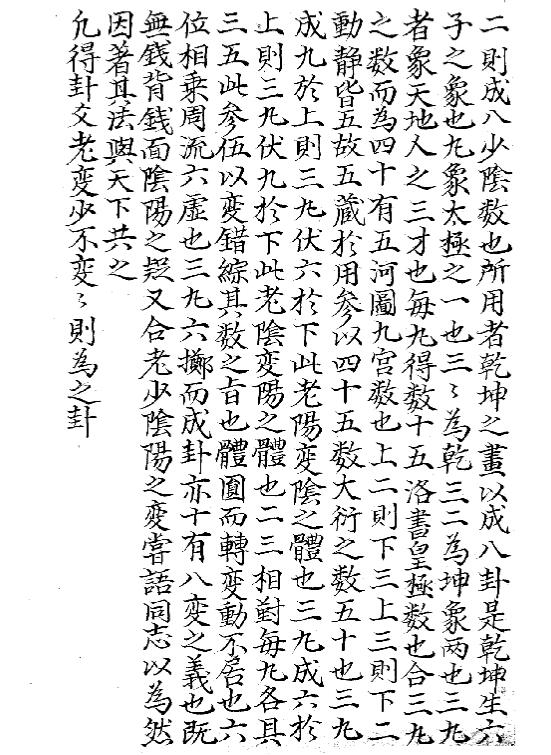 二則成八少陰数也所用者乾坤之畫以成八卦是乾坤生六
子之象也九象太極之一也三〻為乾三二為坤象两也三九
者象天地人之三才也每九得数十五洛書皇極数也合三九
之数而為四十有五河圖九宫数也上二則下三上三則下二
動静皆五故五藏於用参以四十五数大衍之数五十也三九
成九於上則三九伏六於下此老陽変陰之體也三九成六於
上則三九伏九於下此老陰変陽之體也二三相對每九各具
三五此参伍以変錯綜其数之㫖也體圓而轉変動不居也六
位相乗周流六虚也三九六擲而成卦亦十有八変之義也既
無錢背錢面陰陽之疑又合老少陰陽之変嘗語同志以為然
因著其法與天下共之
凢得卦爻老変少不変〻則為之卦